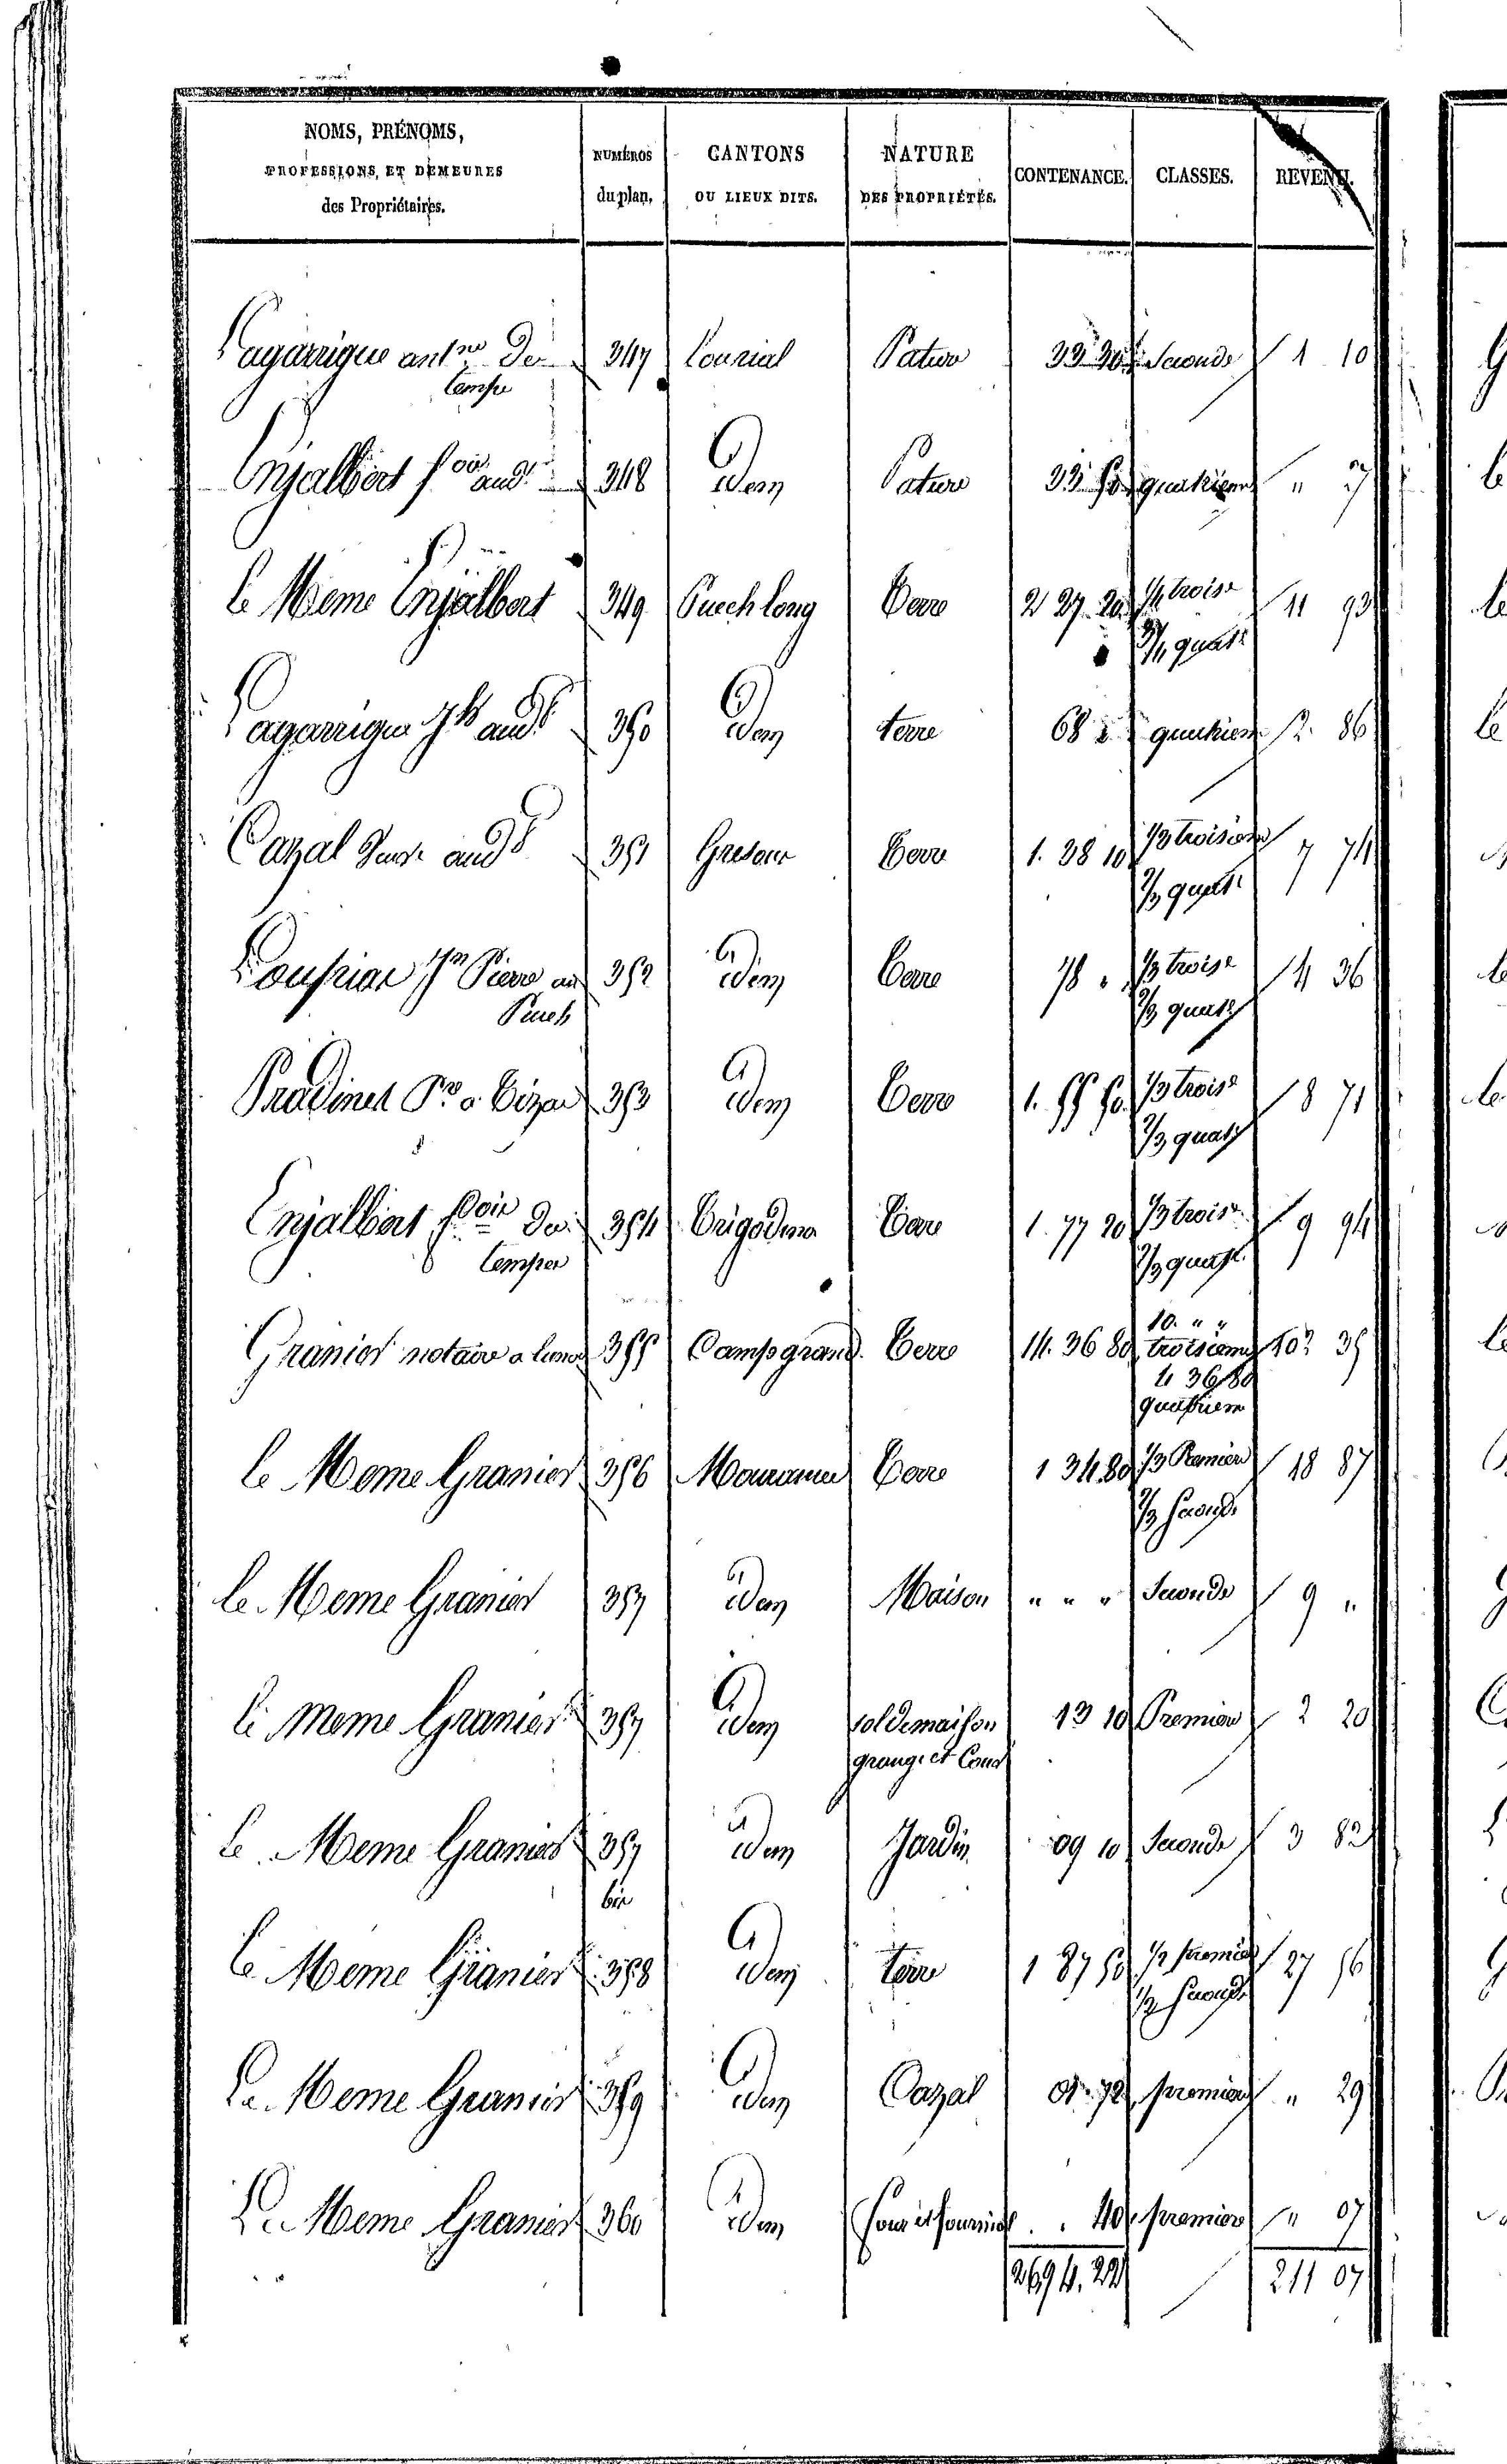 NOMS, PRÉNOMS,
PROFESSIONS, ET DEMEURES
des Propriétaires.
NUMÉROS
du plan.
CANTONS
OU LIEUX DITS.
NATURE
DES PROPRIÉTÉS.
CONTENANCE.
CLASSES.
REVENU.
Lagarrigue ant.ne De 347 Pature 33 30 Seconde 1 10
Enjalbert 348 idem Pature 33 50 quatrieme " 27
le Meme Enjalbert 349 Puech long Terre 2 27 20 1/4 trois.e 11 93
3/4 quat.e
Lagarrigue aud.t 350 idem terre 68 " quatriem 2 86
Cazal aud.t 351 Terre 1. 38 10 1/3 troisieme 7 74
2/3 quat.e
Pierre au 352 idem Terre 78 " 1/3 trois.e 4 36
Puech 2/3 quat.e
Pradines P.re a 353 idem Terre 1. 55 50 1/3 trois.e 8 71
2/3 quat.e
Enjalbert De 354 Terre 1. 77 20 1/3 trois.e 9 94
2/3 quat.e
10. " "
Granier notaire a 355 Camp grand Terre 14. 36 80 troisieme 102 35
4 36 80
quatriem
le Meme Granier 356 Terre 1 34 80 1/3 Premiere 18 87
2/3 Seconde
le Meme Granier 357 idem Maison " " " Seconde 9 "
le meme Granier 357 idem sol de maison 13 10 Premiere 2 20
grange et Cour
le Meme Granier 357 idem Jardin 09 10 Seconde 3 82
bis
le Meme Granier 358 idem terre 1 87 50 1/2 premiere 27 56
1/2 Seconde
Le Meme Granier 359 idem Cazal 01 72 premiere " 29
Le Meme Granier 360 idem four et fourniel " 40 premiere " 07
26 94. 22 211 07